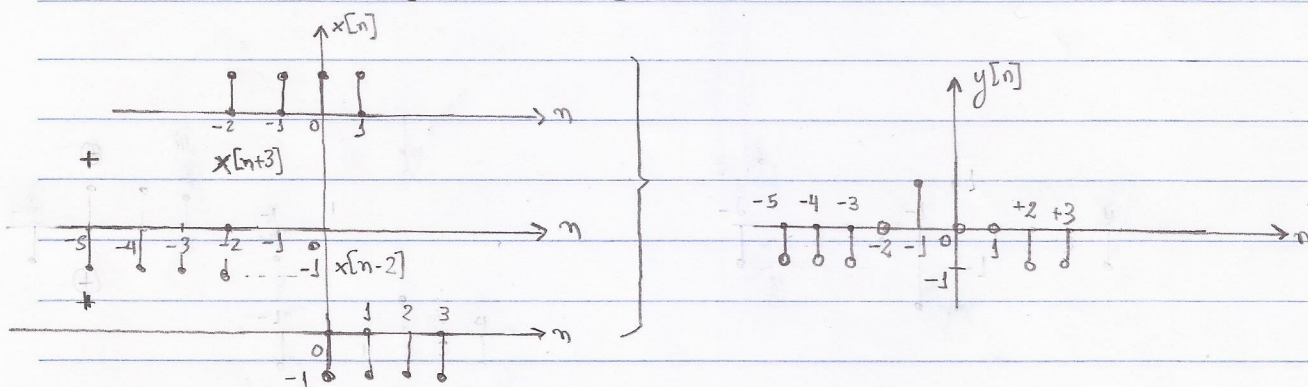 x[n]
-2 -1 0 1 n
+ x[n+3]
-5 -4 -3 -2 -1 0 n
-1 x[n-2]
+
0 1 2 3 n
-1
y[n]
-5 -4 -3 -2 -1 0 1 +2 +3 n
-1